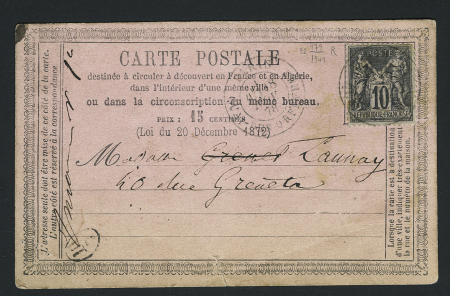 CARTE POSTALE
destinée à circuler à découvert en France et en Algérie,
dans l'intérieur d'une même ville
ou dans la circonscription du même bureau.
PRIX : 15 CENTIMES
(Loi du 20 Décembre 1872)
Madame Launay
20 rue Greneta
L'adresse seule doit être mise de ce côté de la carte.
L'autre côté est réservé à la correspondance.
Lorsque la carte est à destination
d'une ville, indiquer très-exactement
la rue et le numéro de la maison.
POSTES
10